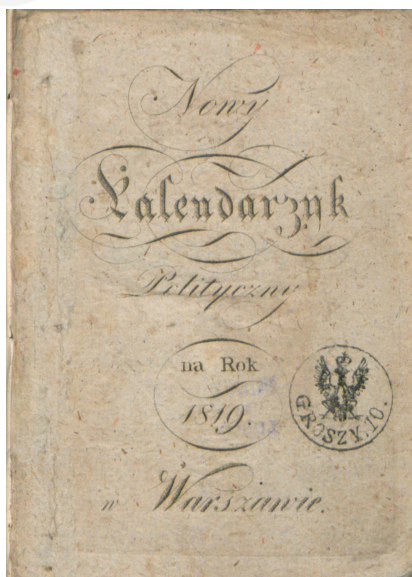 Nowy
Kalendarzyk
Polityczny
na Rok
1819.
GROSZY. 10.
w Warszawie.